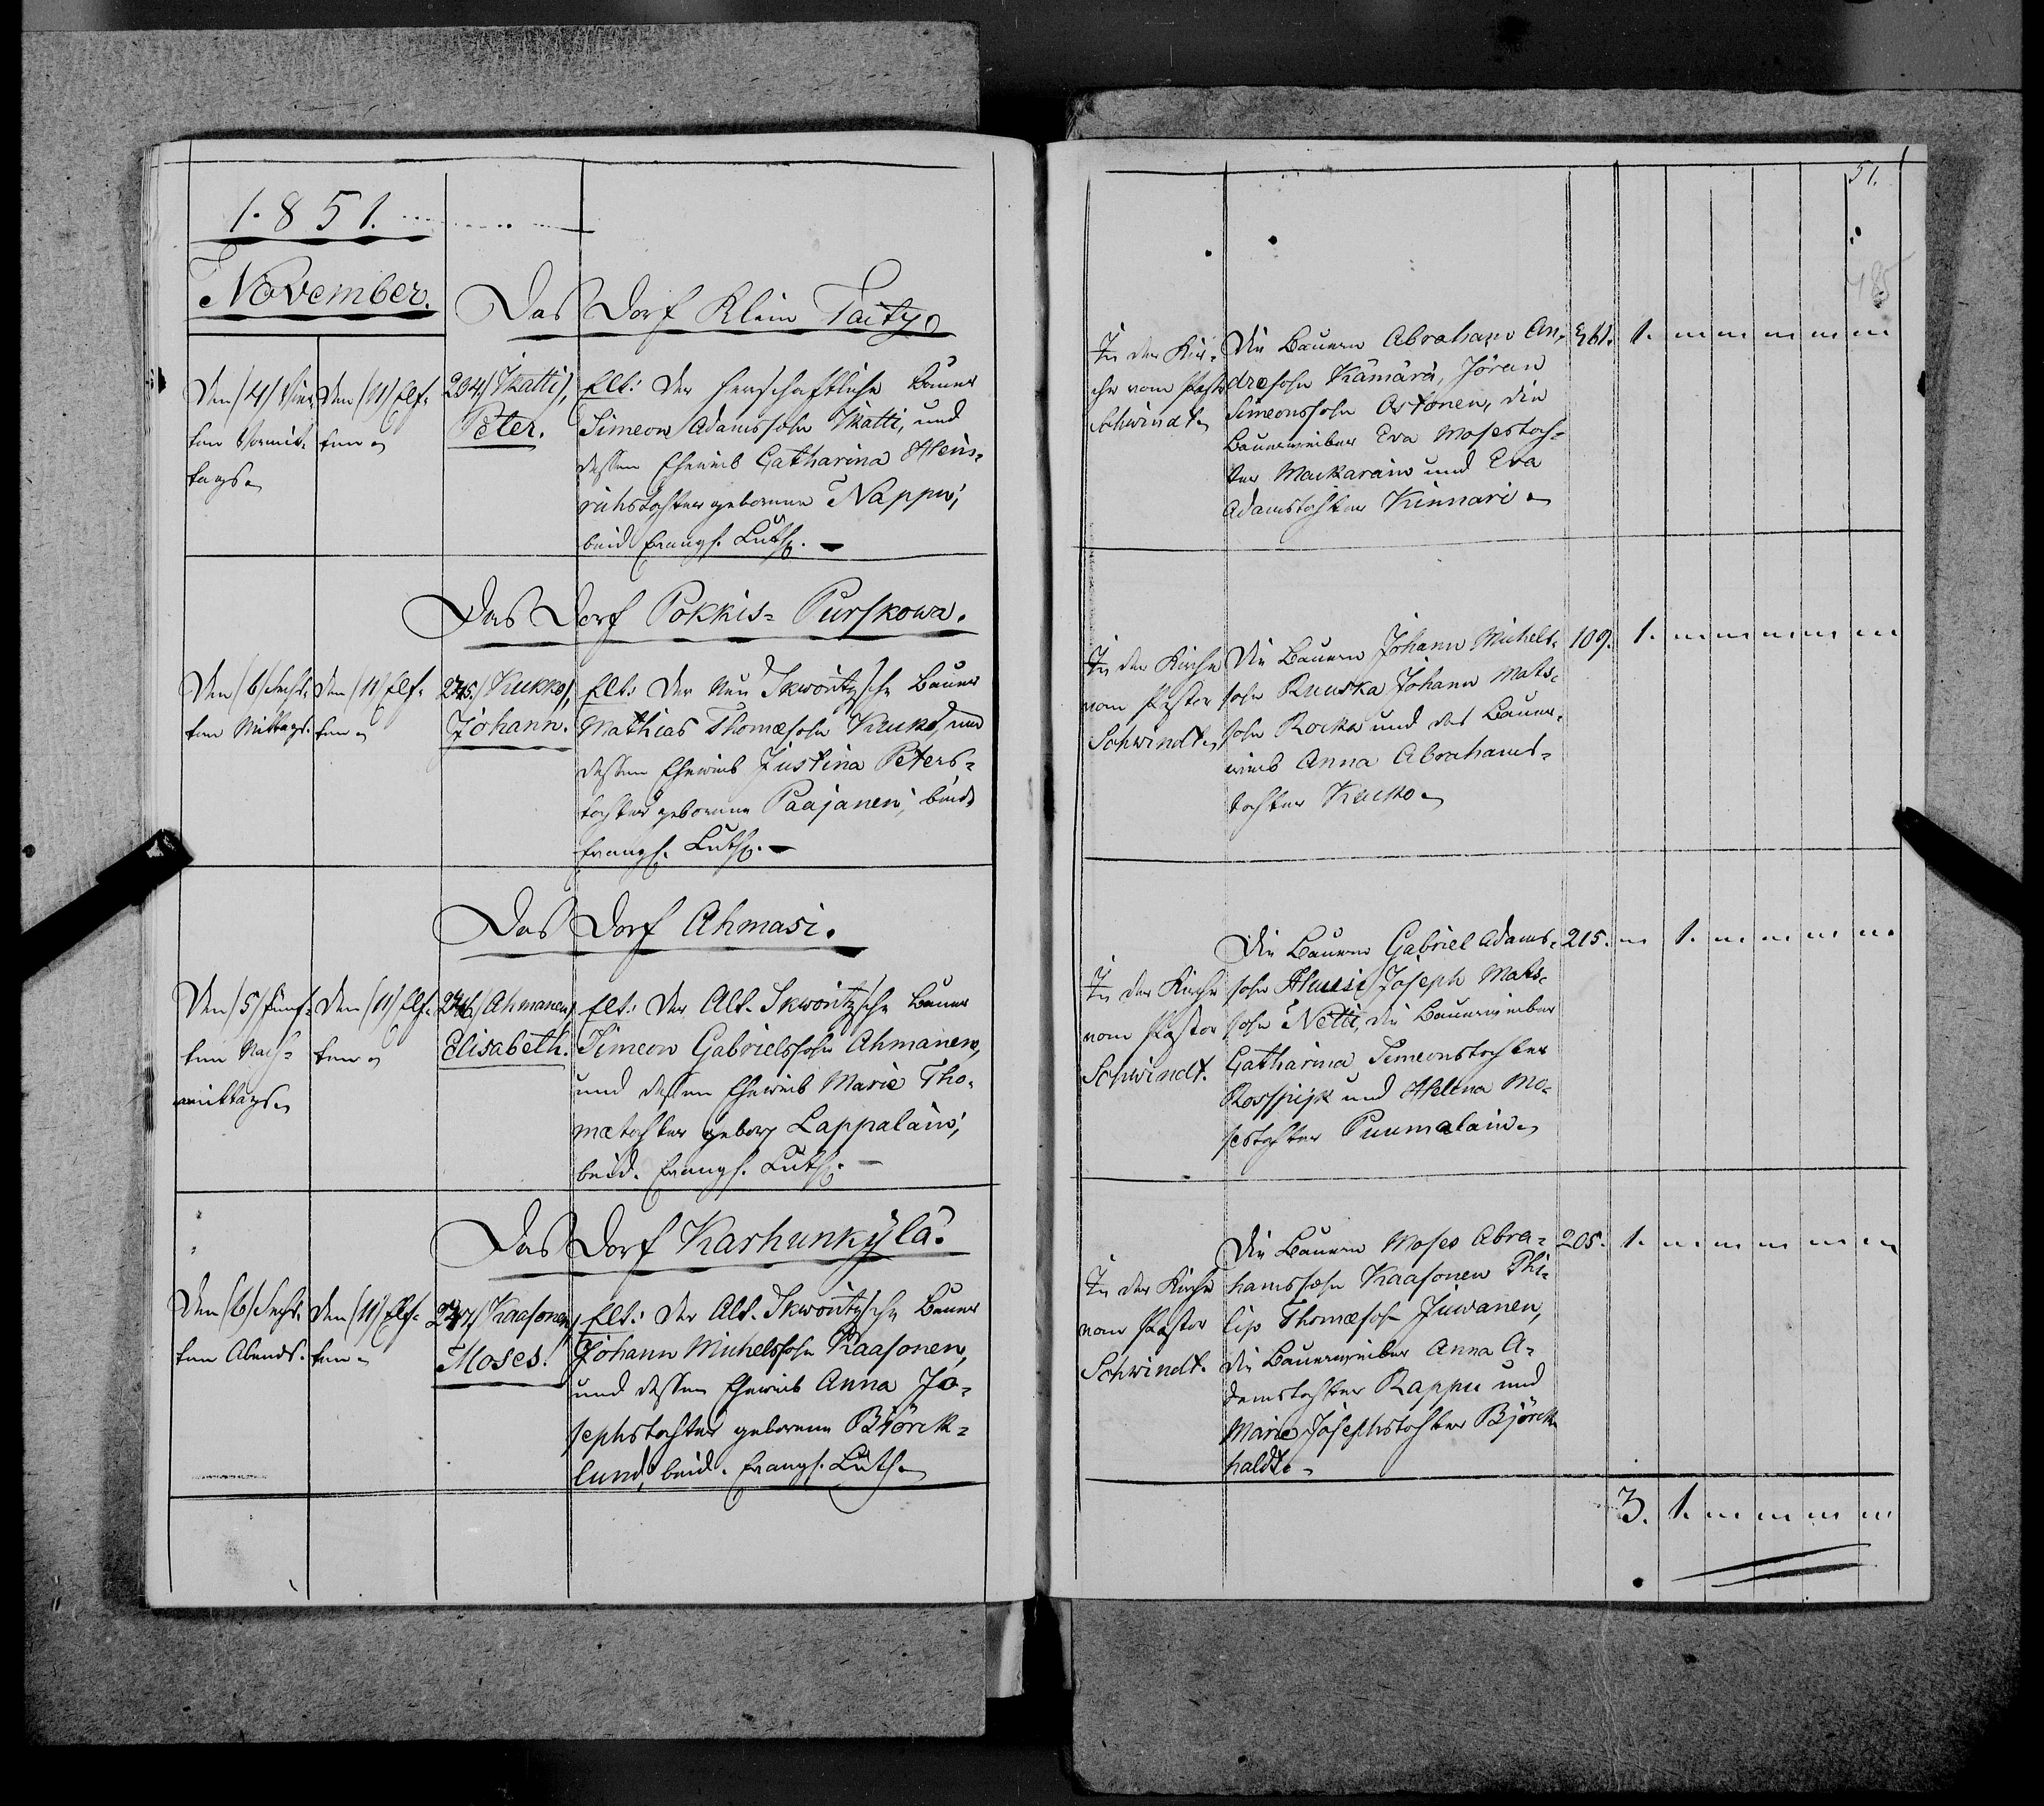 1.851.
November.
Das Dorf Klein Taitz.
Den /4/ Vier-
ten Vormit-
tags.
Den /11/ Elf-
ten.
234/ Ikatti,
Peter.
Elt: Der herschaftliche Bauer
Simeon Adamssohn Ikatti, und
dessen Eheweib Catharina Hein-
richstochter geborene Nappu;
beid. Evangs. Luth.
Das Dorf Pokkis-Purskowa.
Den /6/ Sechs-
ten Mittags.
Den /11/ Elf-
ten.
235/ Kukko,
Johann.
Elt: Der Neu Skworitzsche Bauer
Mathias Thomæsohn Kukko, und
dessen Eheweib Justina Peters-
tochter geborene Paajanen; beid.
Evangs. Luth.
Das Dorf Ahmasi.
Den /5/ Fünf-
ten Nach-
mittags.
Den /11/ Elf-
ten.
236/ Ahmanen
Elisabeth.
Elt: Der Alt-Skworitzsche Bauer
Simeon Gabrielssohn Ahmanen,
und dessen Eheweib Marie Tho-
mætochter gebor. Lappalain;
beid. Evangs. Luth.
Das Dorf Karhunkÿlä.
Den /6/ Sechs-
ten Abends.
Den /11/ Elf-
ten.
237/ Kaasonen
Moses.
Elt: Der Alt-Skworitzsche Bauer
Johann Michelssohn Kaasonen,
und dessen Eheweib Anna Jo-
sephstochter geborene Björck-
lund, beid. Evangs. Luth.
51.
485
In der Kir-
che vom Pastor
Schwindt.
Die Bauern Abraham An-
dreæsohn Kämärä, Jöran
Simeonssohn Ostonen, die
Bauerweiber Eva Mosestoch-
ter Maikarain und Eva
Adamstochter Kinnari.
361. 1. " " " " "
In der Kirche
vom Pastor
Schwindt.
Die Bauern Johann Michels-
sohn Ruuska Johann Mats-
sohn Rocka und das Bauer-
weib Anna Abrahams-
tochter Kukko.
109. 1. " " " " "
In der Kirche
vom Pastor
Schwindt.
Die Bauern Gabriel Adams-
sohn Huusi, Joseph Mats-
sohn Netti, die Bauerweiber
Catharina Simeonstochter
und Helena Mo-
sestochter Puumalain.
215. " 1. " " " "
In der Kirche
vom Pastor
Schwindt.
Die Bauern Moses Abra-
hamssohn Kaasonen Phi-
lip Thomæsohn Juwanen,
die Bauerweiber Anna A-
damstochter Rappu und
Marie Josephstochter Björck-
haldt.
205. 1. " " " " "
3. 1. " " " "